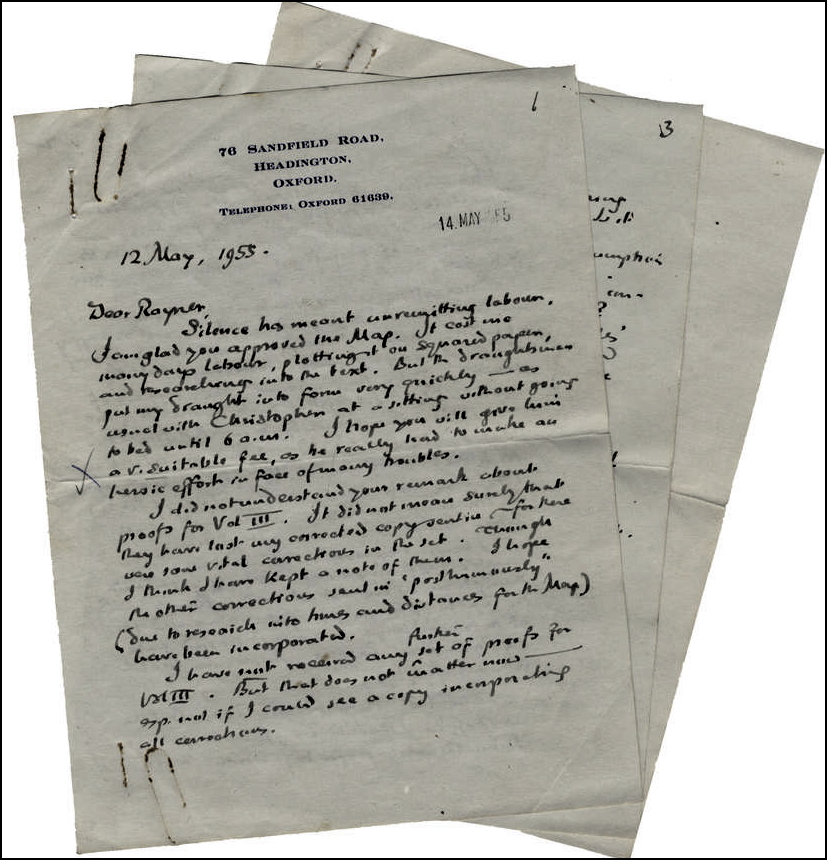 1
76 SANDFIELD ROAD,
HEADINGTON,
OXFORD.
TELEPHONE: OXFORD 61639.
14. MAY 55
12 May, 1955.
Dear Rayner,
Silence has meant unremitting labour.
I am glad you approved the Map. It cost me
many days labour, plotting it on squared paper,
and researching into the text. But the draughtsman
put my draught into form very quickly — as
usual with Christopher at a sitting without going
to bed until 6 a.m. I hope you will give him
a v. suitable fee, as he really had to make an
heroic effort in face of many troubles.
I did not understand your remark about
proofs for Vol III. It did not mean surely that
they have lost my corrected copy sent in – for there
were some vital corrections in the set. Though
I think I have kept a note of them. I hope
the other corrections sent in 'posthumously'
(due to research into times and distances for the Map)
have been incorporated.
I have not received any further set of proofs for
Vol III. But that does not matter now —
esp. not if I could see a copy incorporating
all corrections.
3